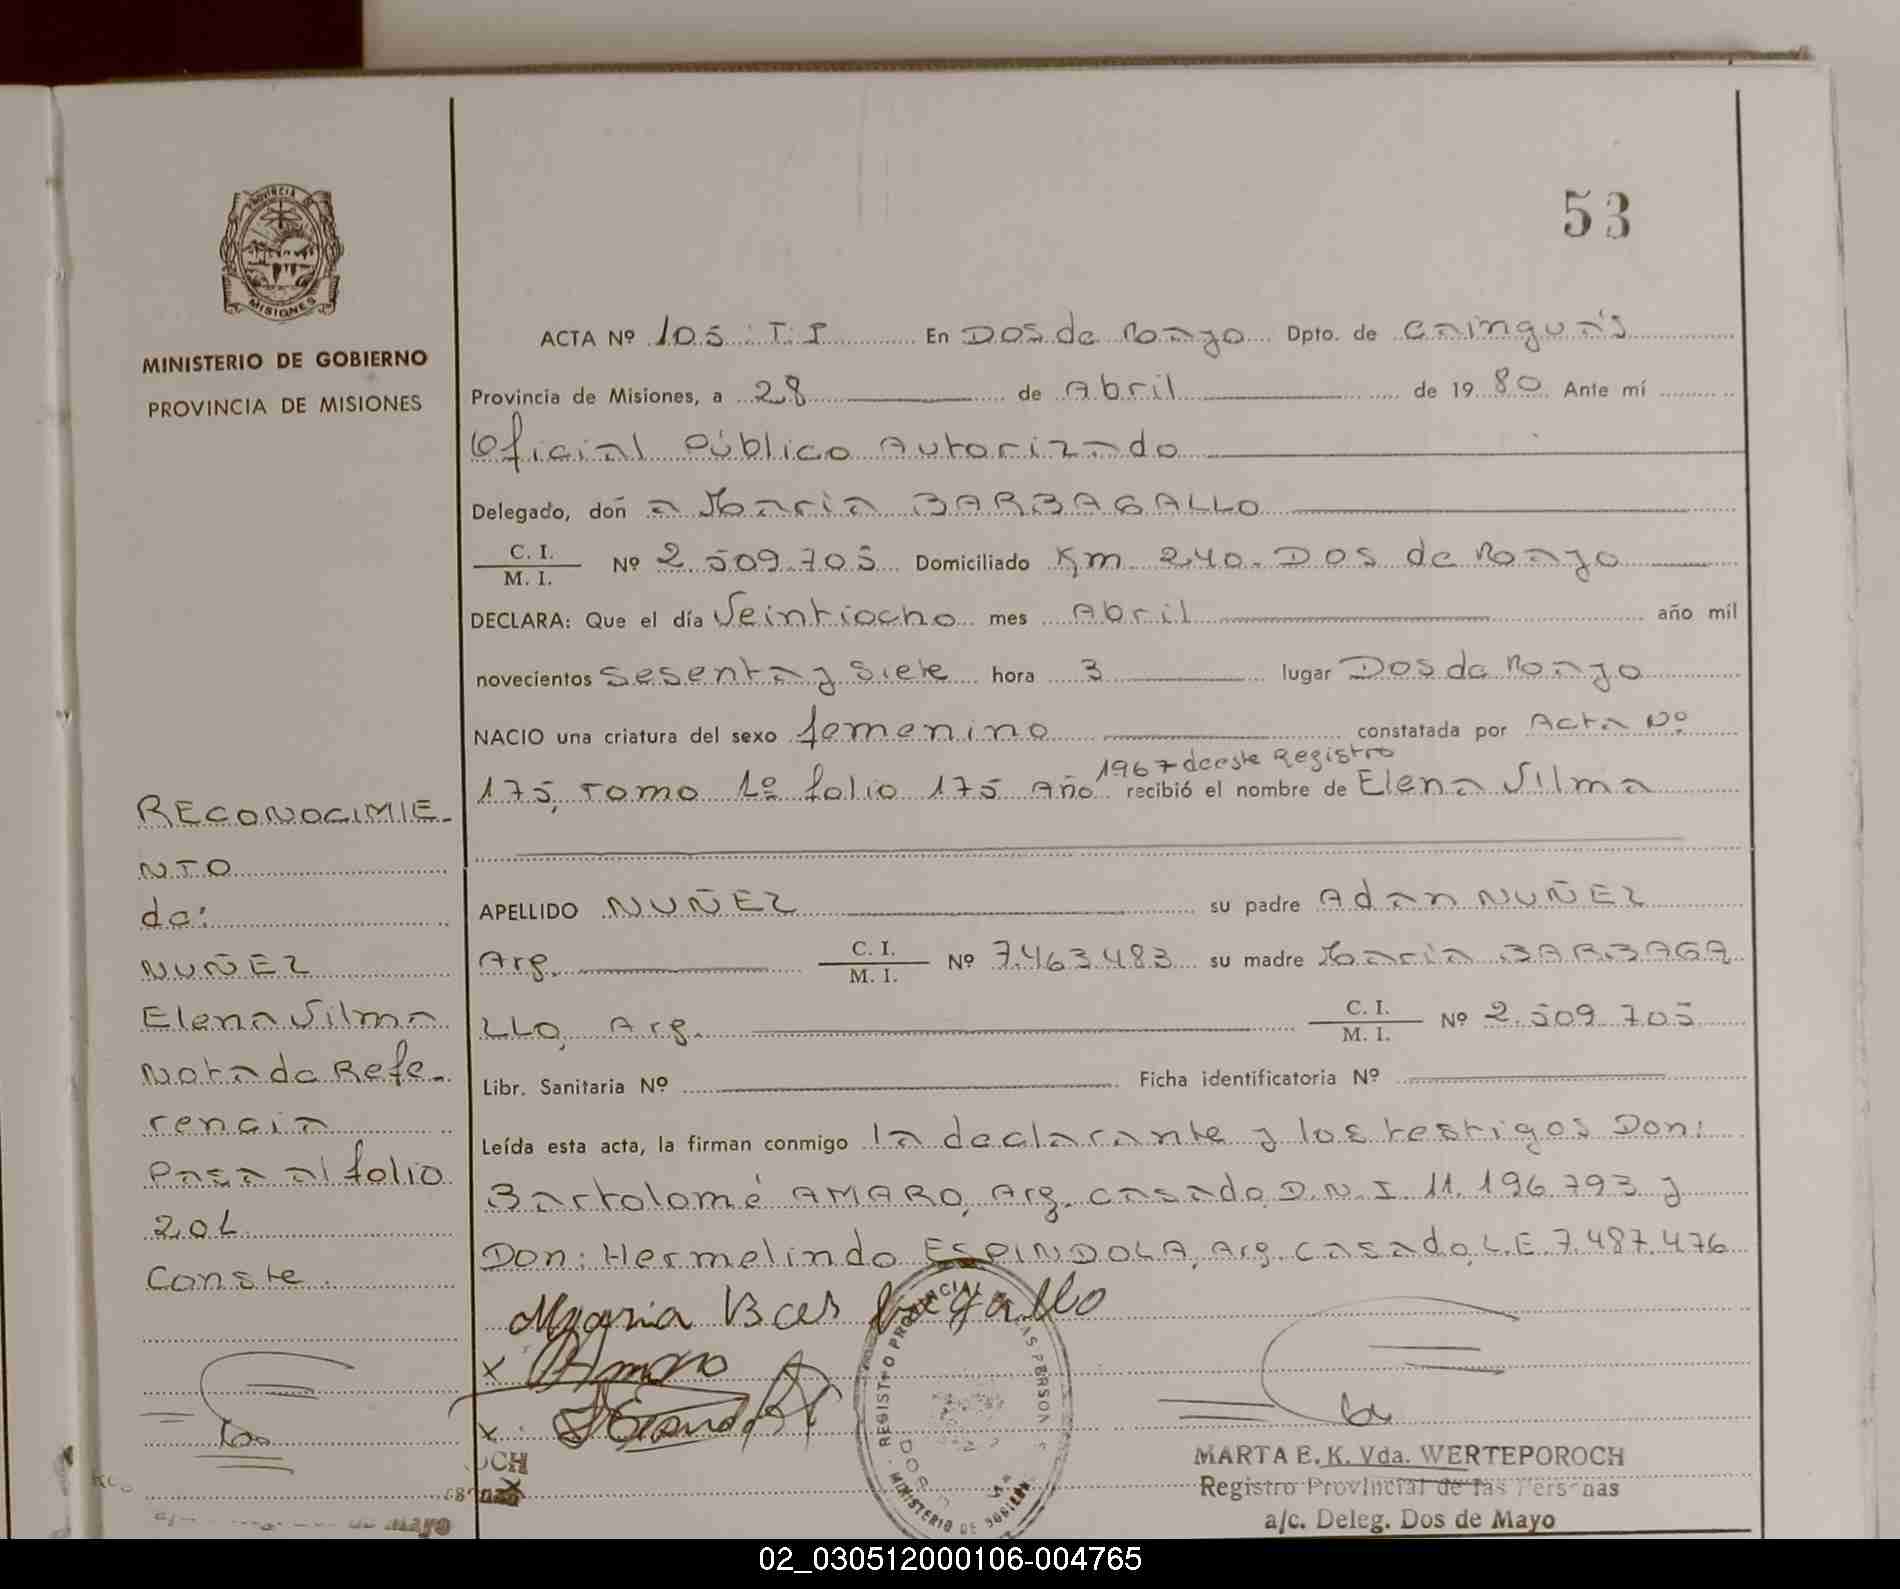 PROVINCIA DE
MISIONES
MINISTERIO DE GOBIERNO
PROVINCIA DE MISIONES
53
ACTA Nº 105 : T: I En Dos de Mayo Dpto. de Cainguás
Provincia de Misiones, a 28 de Abril de 1980 Ante mí
Oficial Público Autorizado
Delegado, doña María BARBAGALLO
C. I.
M. I.
Nº 2.509.705 Domiciliado Km 240. Dos de Mayo
DECLARA: Que el día Veintiocho mes Abril año mil
novecientos sesenta y siete hora 3 lugar Dos de Mayo
NACIO una criatura del sexo femenino constatada por Acta Nº
1967 de este Registro
175, Tomo 1º folio 175 Año recibió el nombre de Elena Vilma
APELLIDO NUÑEZ su padre Adan NUÑEZ
Arg. C. I.
M. I.
Nº 7.463.483 su madre María BARBAGA
LLO, Arg. C. I.
M. I.
Nº 2.509.705
Libr. Sanitaria Nº Ficha identificatoria Nº
Leída esta acta, la firman conmigo la declarante y los testigos Don:
Bartolomé AMARO, Arg. casado, D.N.I. 11.196.793 y
Don: Hermelindo ESPINDOLA, Arg. casado, L.E. 7.487.476
RECONOCIMIE-
NTO
de:
NUÑEZ
Elena Vilma
Nota de Refe-
rencia
Pasa al folio
201
Conste.
x Amaro
x
REGISTRO PROVINCIAL DE LAS PERSONAS
MINISTERIO DE GOBIERNO
DOS
MARTA E. K. Vda. WERTEPOROCH
Registro Provincial de las Personas
a/c. Deleg. Dos de Mayo
OCH
de Mayo
02_030512000106-004765